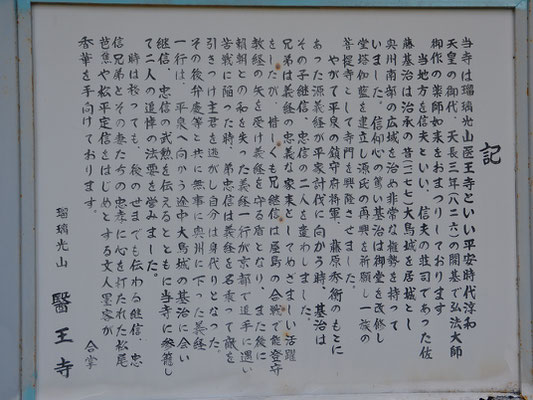 記
当寺は瑠璃光山医王寺といい平安時代淳和
天皇の御代、天長三年(八二六)の開基で弘法大師
御作の薬師如来をおまつりしております
当地方を信夫といい、信夫の荘司であった佐
藤基治は治承の昔(一一七七)大鳥城を居城とし
奥州南部の広域を治め非常な権勢を持って
いました。信仰心の篤い基治は御堂を改修し
堂塔伽藍を建立し源氏の再興を祈願し一族の
菩提寺として寺門を興隆させました。
やがて平泉の鎮守府将軍、藤原秀衡のもとに
あった源義経が平家討伐に向かう時、基治は
その子継信、忠信の二人を遣わしました。
兄弟は義経の忠義な家来としてめざましい活躍
をしたが、惜しくも兄継信は屋島の合戦で能登守
教経の矢を受け義経を守る盾となり、また後に
頼朝との和を失った義経一行が京都で追手に遭い
苦戦に陥った時、弟忠信は義経を名乗って敵を
引きつけ主君を逃がし自分は身代りとなった。
その後弁慶等と共に無事に奥州に下った義経
一行は、平泉へ向かう途中大鳥城の基治に会い
継信、忠信の武勲を伝えるとともに当寺に参籠し
て二人の追悼の法要を営みました。
時は移っても、後のせまでも伝わる継信、忠
信兄弟とその妻たちの忠孝に心を打たれた松尾
芭蕉や松平定信をはじめとする文人墨客が
香華を手向けております。
合掌
瑠璃光山 醫王寺